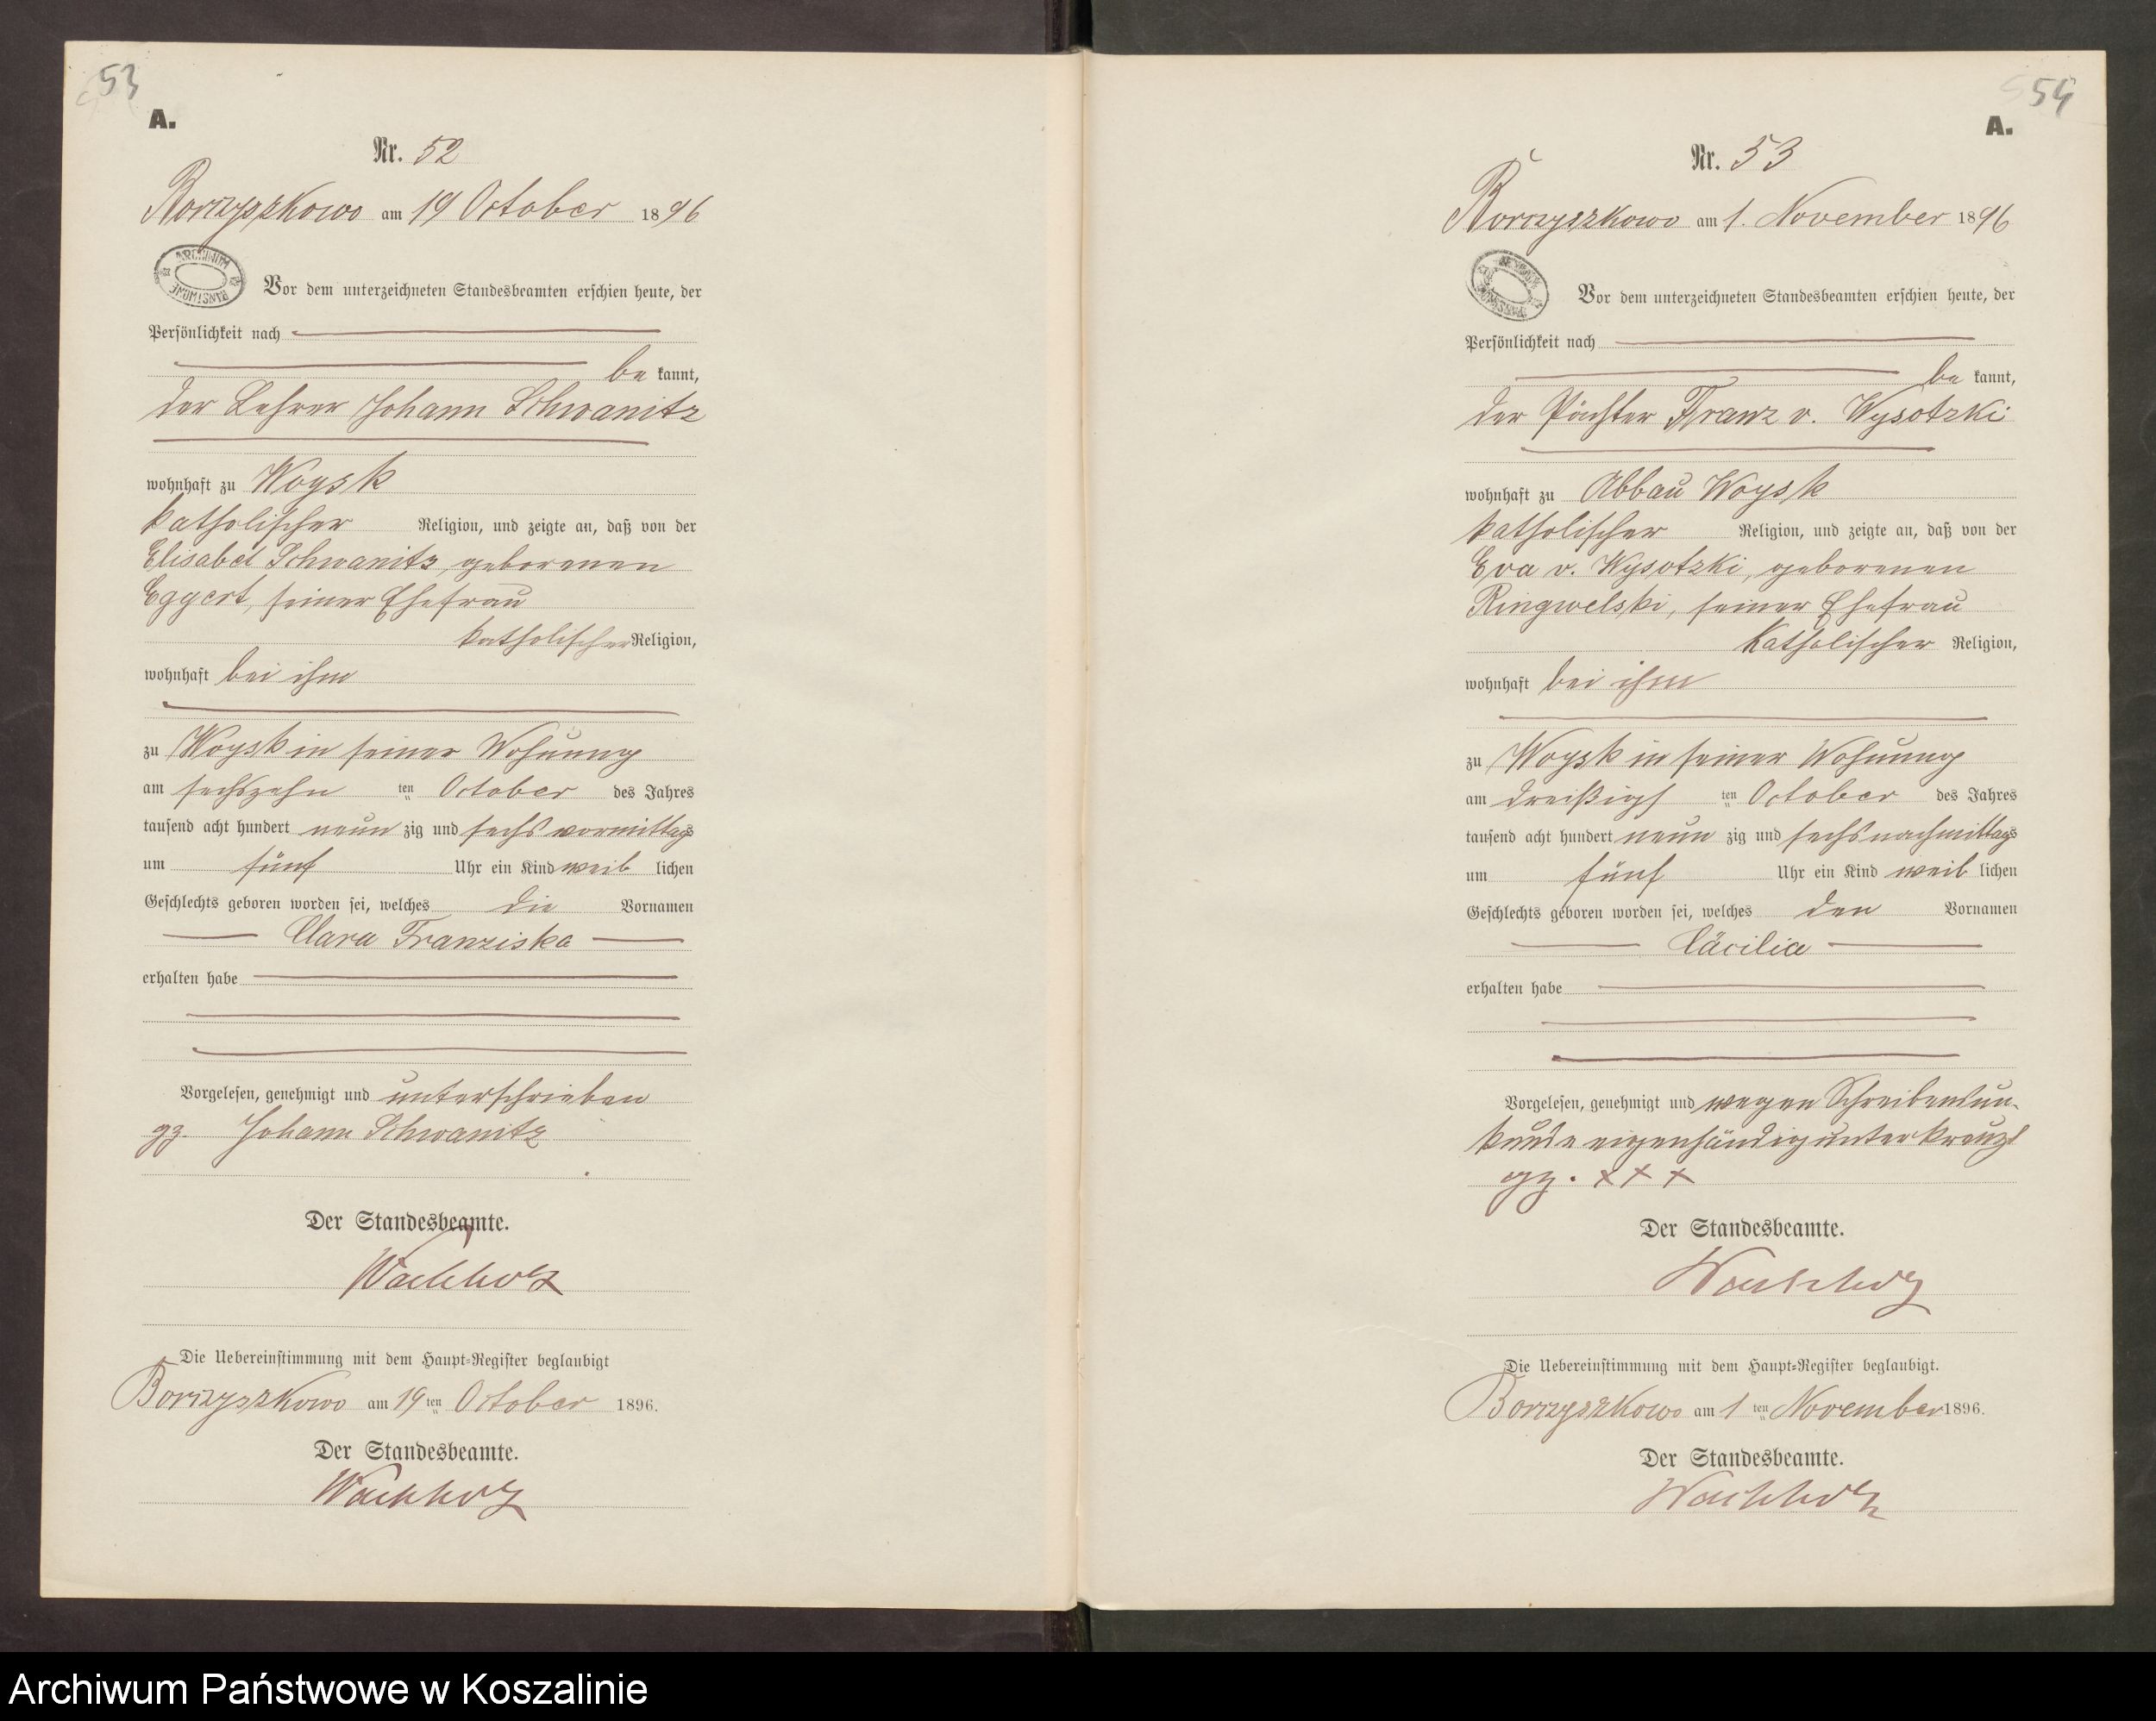 53
A.
Nr. 52
Borzyszkowo am 19 October 1896
ARCHIWUM
Vor dem unterzeichneten Standesbeamten erschien heute, der
Persönlichkeit nach
be kannt,
der Lehrer Johann Schwanitz
wohnhaft zu Woysk
katholischer Religion, und zeigte an, daß von der
Elisabet Schwanitz, geborenen
Eggert, seiner Ehefrau
katholischer Religion,
wohnhaft bei ihm
zu Woysk in seiner Wohnung
am sechszehn ten October des Jahres
tausend acht hundert neun zig und sechs vormittags
um fünf Uhr ein Kind weib lichen
Geschlechts geboren worden sei, welches die Vornamen
Clara Franziska
erhalten habe
Vorgelesen, genehmigt und unterschrieben
gz. Johann Schwanitz
Der Standesbeamte.
Wachholz
Die Uebereinstimmung mit dem Haupt-Register beglaubigt
Borzyszkowo am 19 ten October 1896.
Der Standesbeamte.
Wachholz
54
A.
Nr. 53
Borzyszkowo am 1. November 1896
Vor dem unterzeichneten Standesbeamten erschien heute, der
Persönlichkeit nach
be kannt,
der Pächter Franz v. Wysotzki
wohnhaft zu Abbau Woysk
katholischer Religion, und zeigte an, daß von der
Eva v. Wysotzki, geborenen
Ringwelski, seiner Ehefrau
katholischer Religion,
wohnhaft bei ihm
zu Woysk in seiner Wohnung
am dreißigs ten October des Jahres
tausend acht hundert neun zig und sechs nachmittags
um fünf Uhr ein Kind weib lichen
Geschlechts geboren worden sei, welches den Vornamen
Cäcilie
erhalten habe
Vorgelesen, genehmigt und wegen Schreibensun-
kunde eigenhändig unterkreuzt
gz. xxx
Der Standesbeamte.
Wachholz
Die Uebereinstimmung mit dem Haupt-Register beglaubigt.
Borzyszkowo am 1 ten November 1896.
Der Standesbeamte.
Wachholz
Archiwum Państwowe w Koszalinie